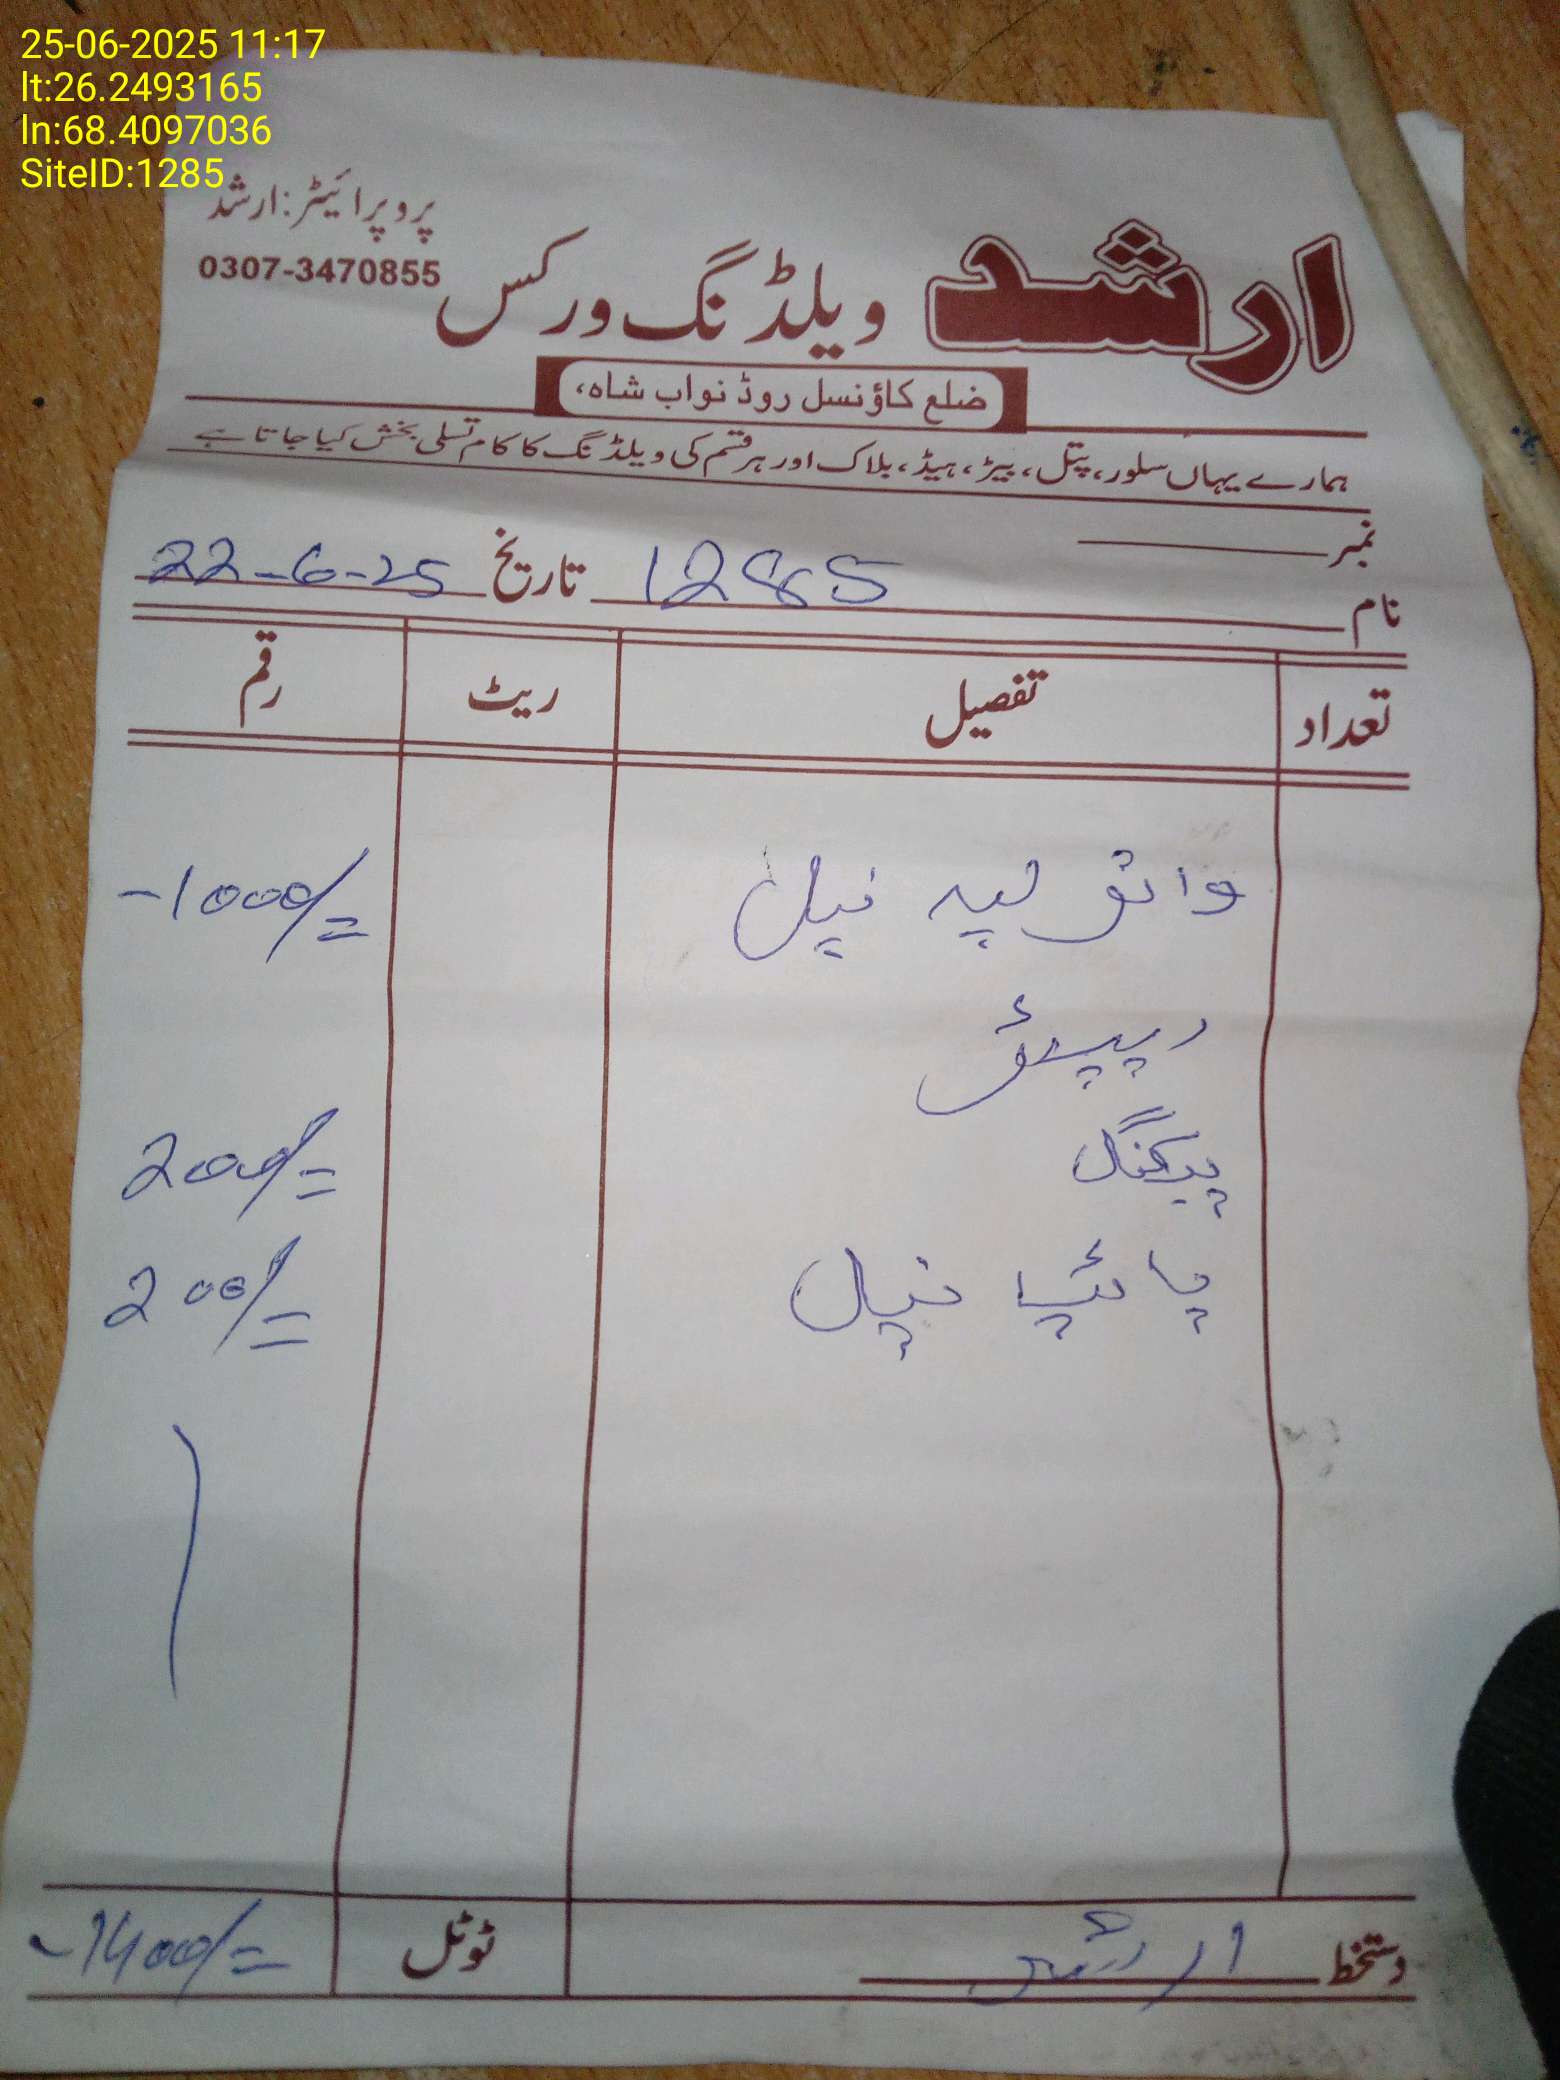 25-06-2025 11:17
lt:26.2493165
ln:68.4097036
SiteID:1285
پروپرائیٹر: ارشد
0307-3470855
ارشد ویلڈنگ ورکس
ضلع کاؤنسل روڈ نواب شاہ،
ہمارے یہاں سلور، پیتل، بیڑ، ہیڈ، بلاک اور ہر قسم کی ویلڈنگ کا کام تسلی بخش کیا جاتا ہے
نمبر
نام 1285 تاریخ 22-6-25
تعداد تفصیل ریٹ رقم
نیپل -1000/=
پیکنگ 200/=
پائپ نیپل 200/=
دستخط ارشد ٹوٹل -1400/=